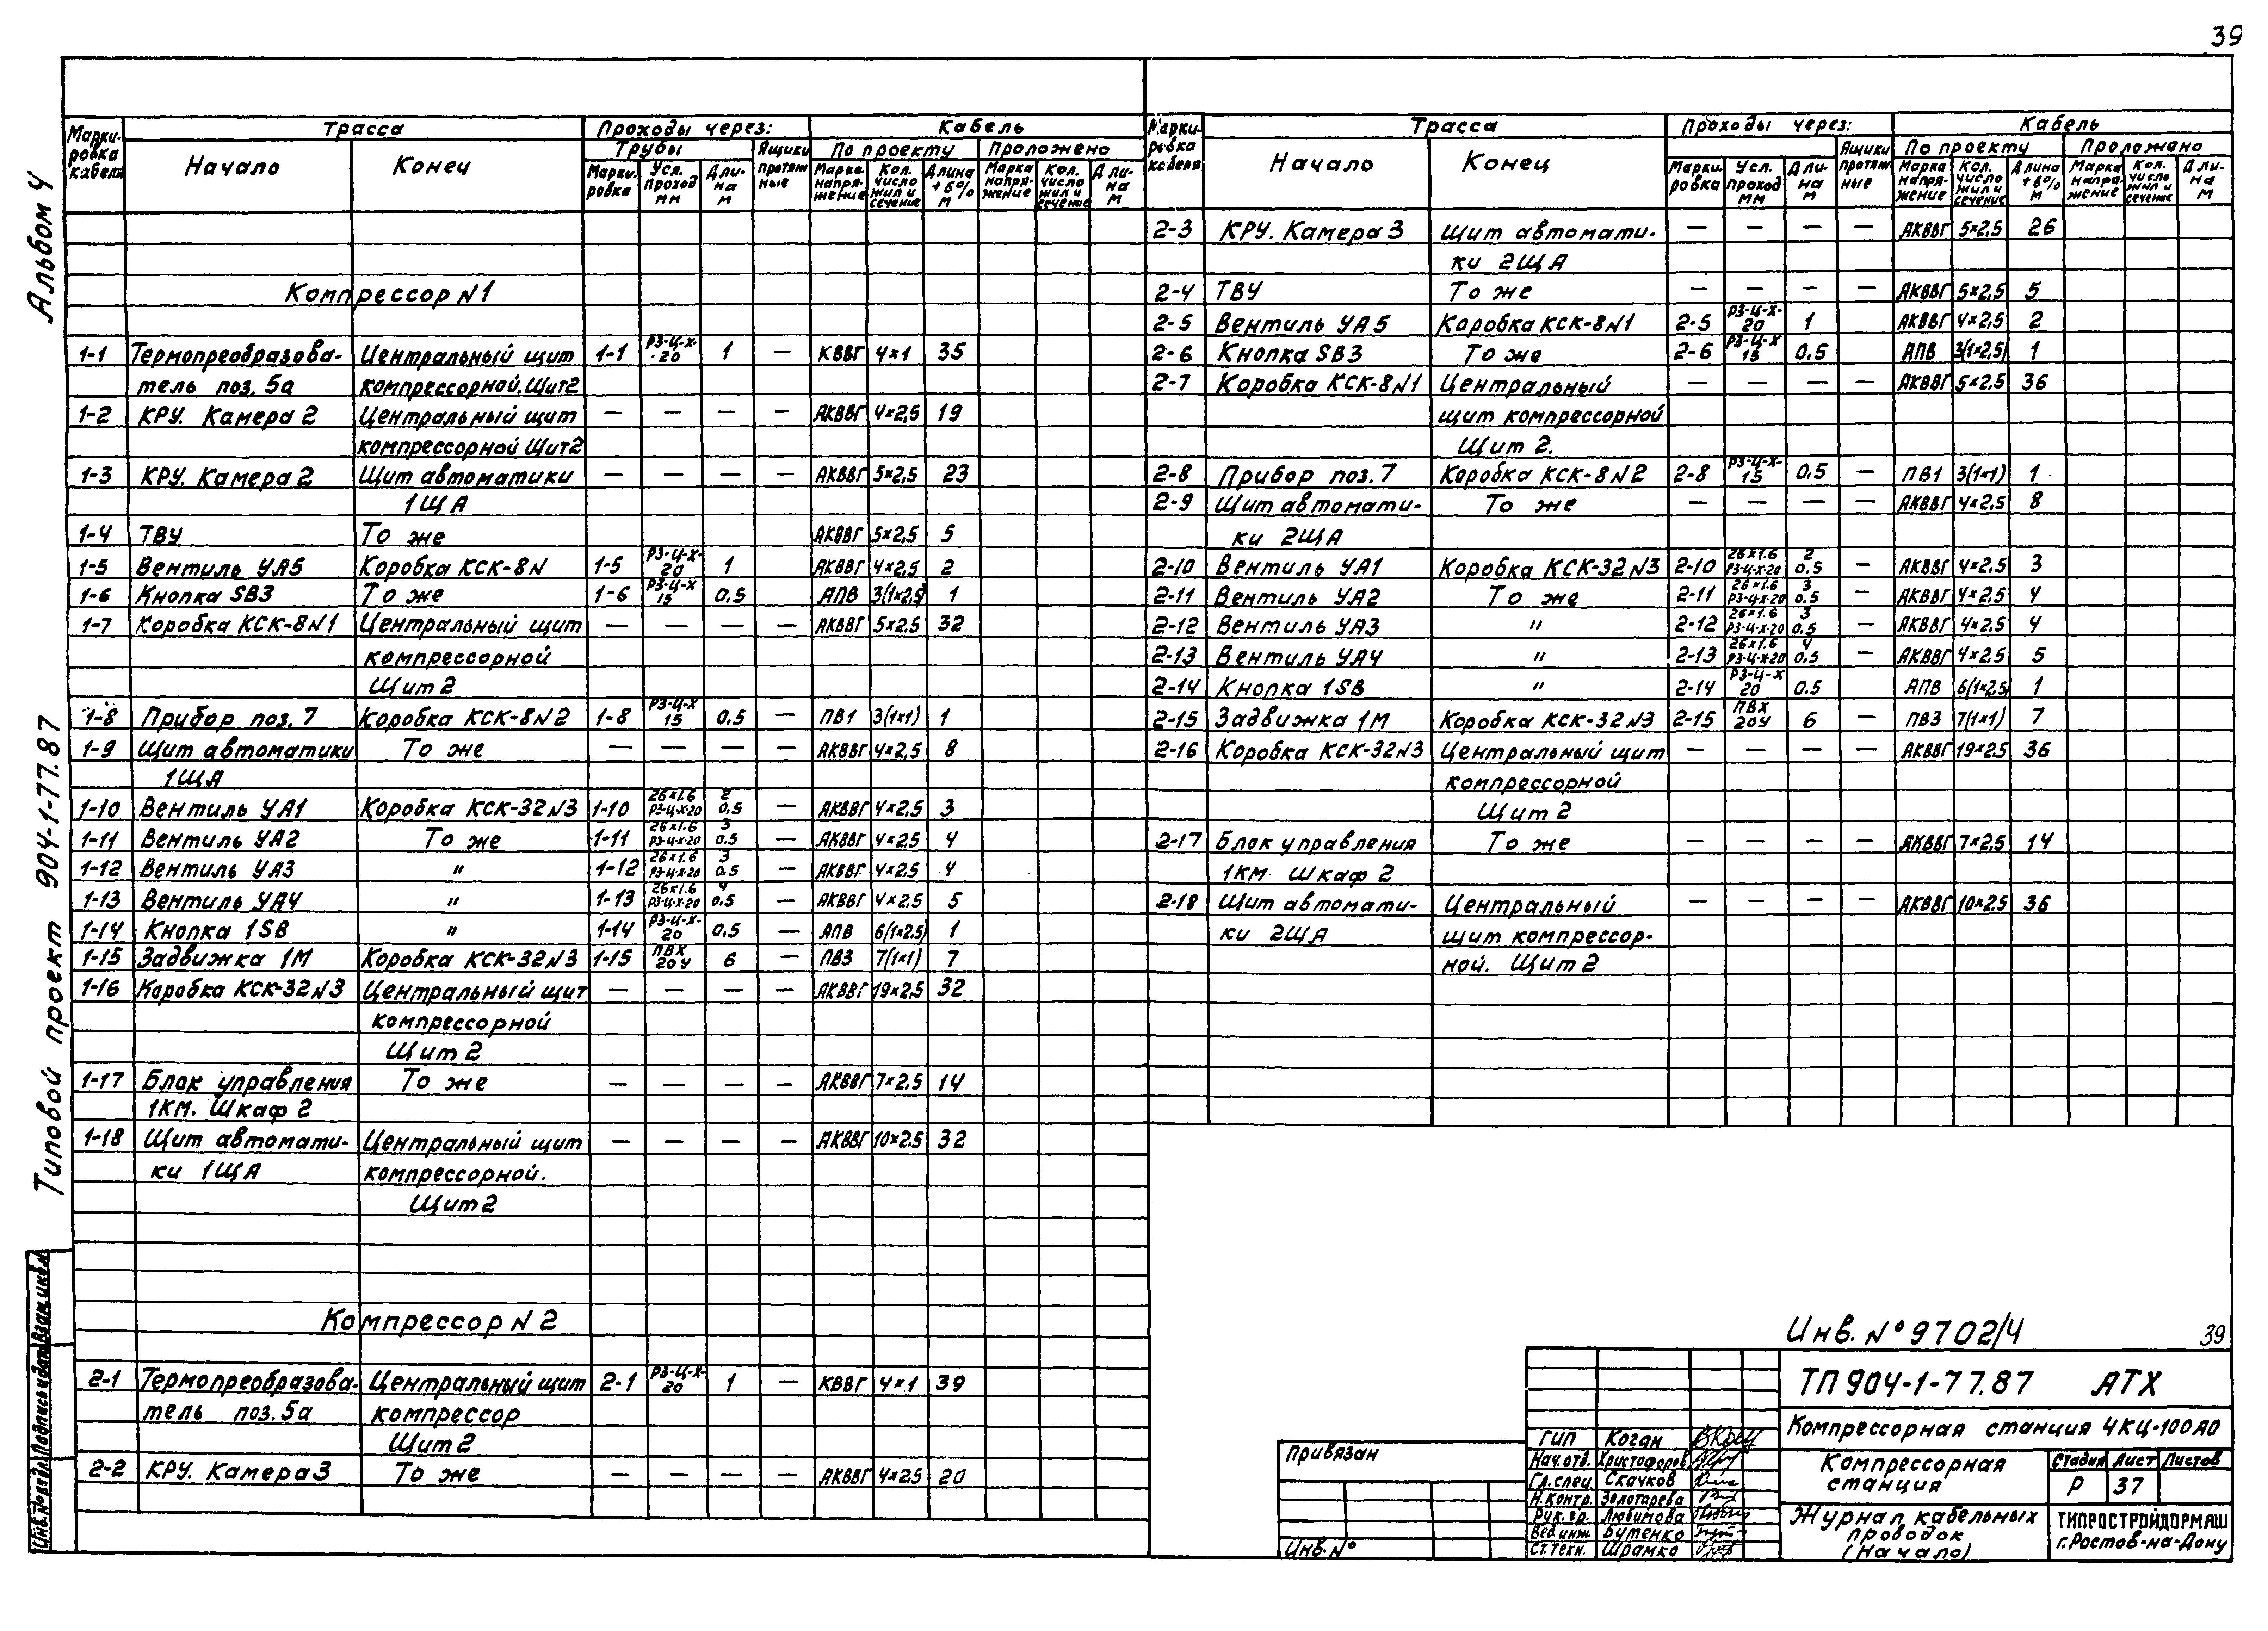 39
Альбом 4
Типовой проект 904-1-77.87
Марки-ровка кабеля | Трасса | Проходы через: | Кабель
Начало | Конец | Трубы | Ящики протяж ные | По проекту | Проложено
Марки-ровка | Усл. проход мм | Дли-на м | Марка напря-жение | Кол. число жил и сечение | Длина +6% м | Марка напря-жение | Кол. число жил и сечение | Дли-на м
Компрессор N1
1-1 | Термопреобразова- | Центральный щит | 1-1 | РЗ-Ц-Х-20 | 1 | — | КВВГ | 4×1 | 35
тель поз. 5а | компрессорной. Щит2
1-2 | КРУ. Камера 2 | Центральный щит | — | — | — | — | АКВВГ | 4×2,5 | 19
компрессорной Щит2
1-3 | КРУ. Камера 2 | Щит автоматики | — | — | — | — | АКВВГ | 5×2,5 | 23
1ЩА
1-4 | ТВУ | То же | АКВВГ | 5×2,5 | 5
1-5 | Вентиль УА5 | Коробка КСК-8N | 1-5 | РЗ-Ц-Х-20 | 1 | — | АКВВГ | 4×2,5 | 2
1-6 | Кнопка SB3 | То же | 1-6 | РЗ-Ц-Х 15 | 0.5 | — | АПВ | 3(1×2,5) | 1
1-7 | Коробка КСК-8N1 | Центральный щит | — | — | — | — | АКВВГ | 5×2,5 | 32
компрессорной
Щит 2
1-8 | Прибор поз. 7 | Коробка КСК-8N2 | 1-8 | РЗ-Ц-Х 15 | 0,5 | — | ПВ1 | 3(1×1) | 1
1-9 | Щит автоматики | То же | — | — | — | — | АКВВГ | 4×2,5 | 8
1ЩА
1-10 | Вентиль УА1 | Коробка КСК-32N3 | 1-10 | 26×1.6 РЗ-Ц-Х-20 | 2 0,5 | — | АКВВГ | 4×2,5 | 3
1-11 | Вентиль УА2 | То же | 1-11 | 26×1.6 РЗ-Ц-Х-20 | 3 0.5 | — | АКВВГ | 4×2,5 | 4
1-12 | Вентиль УА3 | " | 1-12 | 26×1.6 РЗ-Ц-Х-20 | 3 0.5 | — | АКВВГ | 4×2.5 | 4
1-13 | Вентиль УА4 | " | 1-13 | 26×1.6 РЗ-Ц-Х-20 | 4 0.5 | — | АКВВГ | 4×2.5 | 5
1-14 | Кнопка 1SB | " | 1-14 | РЗ-Ц-Х-20 | 0,5 | — | АПВ | 6(1×2.5) | 1
1-15 | Задвижка 1М | Коробка КСК-32N3 | 1-15 | ПВХ 20У | 6 | — | ПВ3 | 7(1×1) | 7
1-16 | Коробка КСК-32N3 | Центральный щит | — | — | — | — | АКВВГ | 19×2,5 | 32
компрессорной
Щит 2
1-17 | Блак управления | То же | — | — | — | — | АКВВГ | 7×2,5 | 14
1КМ. Шкаф 2
1-18 | Щит автомати- | Центральный щит | — | — | — | — | АКВВГ | 10×2.5 | 32
ки 1ЩА | компрессорной.
Щит 2
Компрессор N 2
2-1 | Термопреобразова- | Центральный щит | 2-1 | РЗ-Ц-Х-20 | 1 | — | КВВГ | 4×1 | 39
тель поз. 5а | компрессор
Щит 2
2-2 | КРУ. Камера 3 | То же | — | — | — | — | АКВВГ | 4×2.5 | 20
Марки-ровка кабеля | Трасса | Проходы через: | Кабель
Начало | Конец | Ящики протяж ные | По проекту | Проложено
Марки-ровка | Усл. проход мм | Дли-на м | Марка напря-жение | Кол. число жил и сечение | Длина +6% м | Марка напря-жение | Кол. число жил и сечение | Дли-на м
2-3 | КРУ. Камера 3 | Щит автомати- | — | — | — | — | АКВВГ | 5×2,5 | 26
ки 2ЩА
2-4 | ТВУ | То же | — | — | — | — | АКВВГ | 5×2,5 | 5
2-5 | Вентиль УА5 | Коробка КСК-8N1 | 2-5 | РЗ-Ц-Х-20 | 1 | АКВВГ | 4×2,5 | 2
2-6 | Кнопка SB3 | То же | 2-6 | РЗ-Ц-Х 15 | 0.5 | — | АПВ | 3(1×2,5) | 1
2-7 | Коробка КСК-8N1 | Центральный | — | — | — | — | АКВВГ | 5×2.5 | 36
щит компрессорной
Щит 2.
2-8 | Прибор поз. 7 | Коробка КСК-8N2 | 2-8 | РЗ-Ц-Х-15 | 0.5 | — | ПВ1 | 3(1×1) | 1
2-9 | Щит автомати- | То же | — | — | — | — | АКВВГ | 4×2.5 | 8
ки 2ЩА
2-10 | Вентиль УА1 | Коробка КСК-32N3 | 2-10 | 26×1.6 РЗ-Ц-Х-20 | 2 0.5 | — | АКВВГ | 4×2.5 | 3
2-11 | Вентиль УА2 | То же | 2-11 | 26×1.6 РЗ-Ц-Х-20 | 3 0.5 | — | АКВВГ | 4×2.5 | 4
2-12 | Вентиль УА3 | " | 2-12 | 26×1.6 РЗ-Ц-Х-20 | 3 0.5 | — | АКВВГ | 4×2.5 | 4
2-13 | Вентиль УА4 | " | 2-13 | 26×1.6 РЗ-Ц-Х-20 | 4 0.5 | — | АКВВГ | 4×2.5 | 5
2-14 | Кнопка 1SB | " | 2-14 | РЗ-Ц-Х 20 | 0.5 | АПВ | 6(1×2.5) | 1
2-15 | Задвижка 1М | Коробка КСК-32N3 | 2-15 | ПВХ 20У | 6 | — | ПВ3 | 7(1×1) | 7
2-16 | Коробка КСК-32N3 | Центральный щит | — | — | — | — | АКВВГ | 19×2.5 | 36
компрессорной
Щит 2
2-17 | Блак управления | То же | — | — | — | — | АКВВГ | 7×2,5 | 14
1КМ Шкаф 2
2-18 | Щит автомати- | Центральный | — | — | — | — | АКВВГ | 10×2.5 | 36
ки 2ЩА | щит компрессор-
ной. Щит 2
Инв. № 9702/4
39
ТП 904-1-77.87 АТХ
Компрессорная станция 4КЦ-100А0
Компрессорная станция
Стадия | Лист | Листов
Р | 37
Журнал кабельных проводок (начало)
ГИПРОСТРОЙДОРМАШ
г. Ростов-на-Дону
ГИП | Коган
Нач.отд. | Христофоров
Гл.спец. | Скачков
Н.контр. | Золотарева
Рук.гр. | Любимова
Вед.инж. | Бутенко
Ст.техн. | Шрамко
Привязан
Инв. №
Инв.№ подл. | Подпись и дата | Взам.инв.№